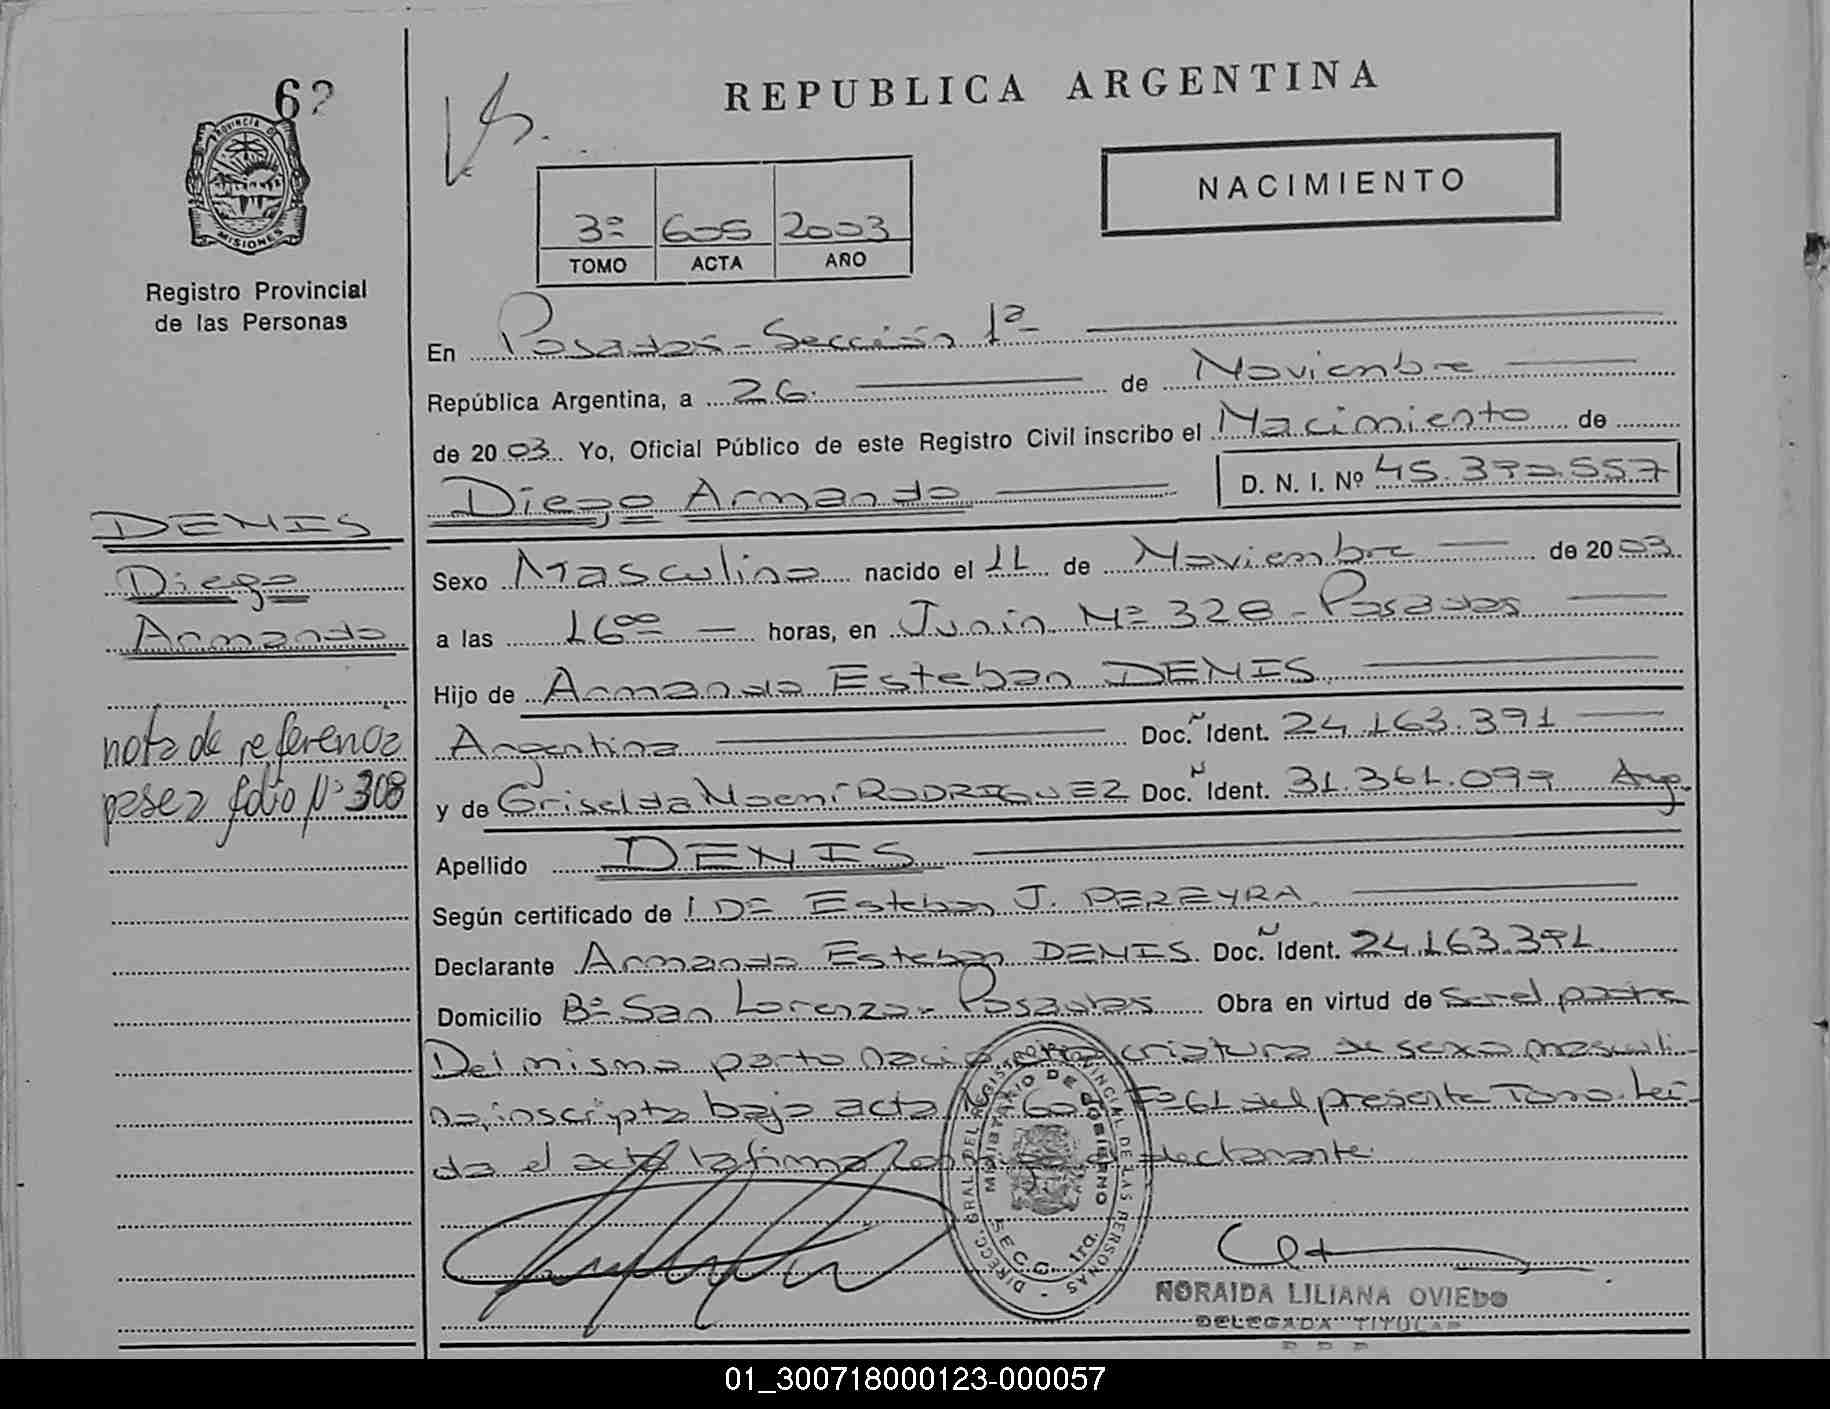 62
REPUBLICA ARGENTINA
PROVINCIA DE
MISIONES
Registro Provincial
de las Personas
NACIMIENTO
3º 605 2003
TOMO ACTA AÑO
En Posadas - Sección 1ª
República Argentina, a 26 de Noviembre
de 2003 Yo, Oficial Público de este Registro Civil inscribo el Nacimiento de
Diego Armando D. N. I. Nº 45.392.557
DENIS
Diego
Armando
Sexo Masculino nacido el 11 de Noviembre de 2003
a las 16 00 horas, en Junín Nº 328 - Posadas
Hijo de Armando Esteban DENIS
Argentina Doc. N Ident. 24.163.391
y de Griselda Noemí RODRIGUEZ Doc. N Ident. 31.361.099 Arg.
nota de referencia
pase a folio Nº 308
Apellido DENIS
Según certificado de Esteban J. PEREYRA
Declarante Armando Esteban DENIS Doc. N Ident. 24.163.391
Domicilio Bº San Lorenzo - Posadas Obra en virtud de Ser el padre
Del mismo parto nació otra criatura de sexo masculi-
no, inscripta bajo acta Fº 61 del presente Tomo. Leí-
da el acta la firma el declarante.
DIRECC. GRAL. DEL REGISTRO PROVINCIAL DE LAS PERSONAS
MINISTERIO DE GOBIERNO
SECC. 1ra.
NORAIDA LILIANA OVIEDO
DELEGADA TITULAR
01_300718000123-000057